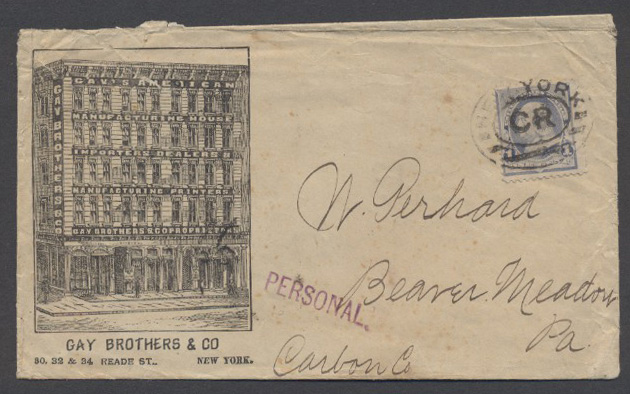 GAY'S AMERICAN
MANUFACTURING HOUSE
IMPORTERS DEALERS &
MANUFACTURING PRINTERS
GAY BROTHERS & CO PROPRIET
GAY BROTHERS & CO
GAY BROTHERS & CO
30, 32 & 34 READE ST., NEW YORK.
YORK
CR
W. Perhard
PERSONAL.
Beaver Meadow
Pa.
Carbon Co